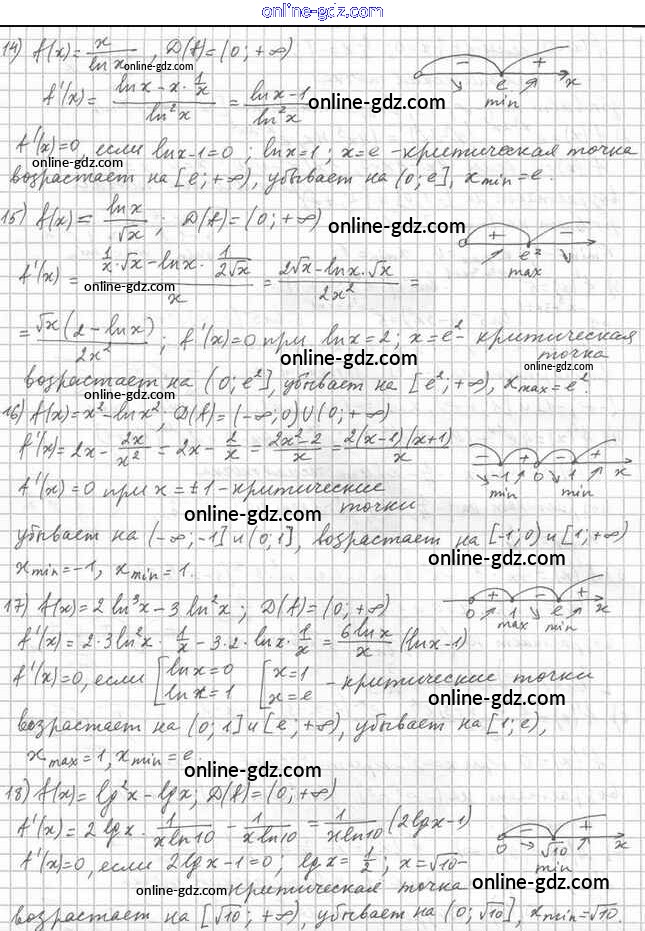 online-gdz.com
14) f(x) = x/ln x, D(f) = (0; +∞)
online-gdz.com
− + e min x
f'(x) = (ln x − x · 1/x)/ln²x = (ln x − 1)/ln²x
online-gdz.com
f'(x) = 0, если ln x − 1 = 0; ln x = 1; x = e - критическая точка
online-gdz.com
возрастает на [e; +∞), убывает на (0; e], x min = e.
15) f(x) = ln x/√x; D(f) = (0; +∞)
online-gdz.com
+ − e² max
f'(x) = (1/x · √x − ln x · 1/(2√x))/x = (2√x − ln x · √x)/(2x²) =
online-gdz.com
= √x(2 − ln x)/(2x²); f'(x) = 0 при ln x = 2; x = e² - критическая
точка
online-gdz.com
возрастает на (0; e²], убывает на [e²; +∞), x max = e².
online-gdz.com
16) f(x) = x² − ln x²; D(f) = (−∞; 0) ∪ (0; +∞)
f'(x) = 2x − 2x/x² = 2x − 2/x = (2x² − 2)/x = 2(x−1)(x+1)/x
− + − + −1 0 1 x min min
f'(x) = 0 при x = ±1 - критические
точки
online-gdz.com
убывает на (−∞; −1] и (0; 1], возрастает на [−1; 0) и [1; +∞)
online-gdz.com
x min = −1, x min = 1.
17) f(x) = 2 ln³x − 3 ln²x; D(f) = (0; +∞)
+ − + 0 1 e x max min
f'(x) = 2 · 3 ln²x · 1/x − 3 · 2 · ln x · 1/x = 6 ln x/x (ln x − 1)
f'(x) = 0, если [ln x = 0 ln x = 1 [x = 1 x = e - критические точки
online-gdz.com
возрастает на (0; 1] и [e; +∞), убывает на [1; e),
x max = 1, x min = e.
online-gdz.com
18) f(x) = lg²x − lg x; D(f) = (0; +∞)
f'(x) = 2 lg x · 1/(x ln 10) − 1/(x ln 10) = 1/(x ln 10) (2 lg x − 1)
− + 0 √10 x min
f'(x) = 0, если 2 lg x − 1 = 0; lg x = 1/2; x = √10 -
online-gdz.com
критическая точка
online-gdz.com
возрастает на [√10; +∞), убывает на (0; √10], x min = √10.
online-gdz.com